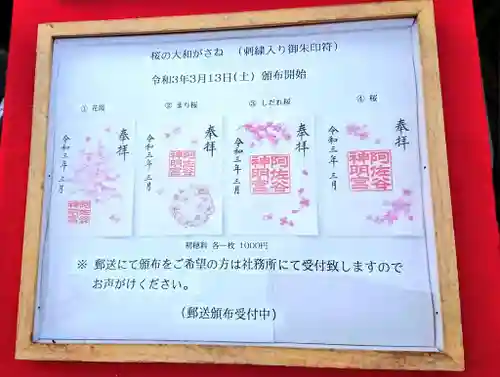 桜の大和がさね （刺繍入り御朱印符）
令和3年3月13日(土) 頒布開始
① 花霞
② まり桜
③ しだれ桜
④ 桜
奉拝
令和三年 三月
阿佐谷神明宮
奉拝
令和三年 三月
阿佐谷神明宮
奉拝
令和三年 三月
阿佐谷神明宮
奉拝
令和三年 三月
阿佐谷神明宮
初穂料 各一枚 1000円
※ 郵送にて頒布をご希望の方は社務所にて受付致しますので
お声がけください。
（郵送頒布受付中）